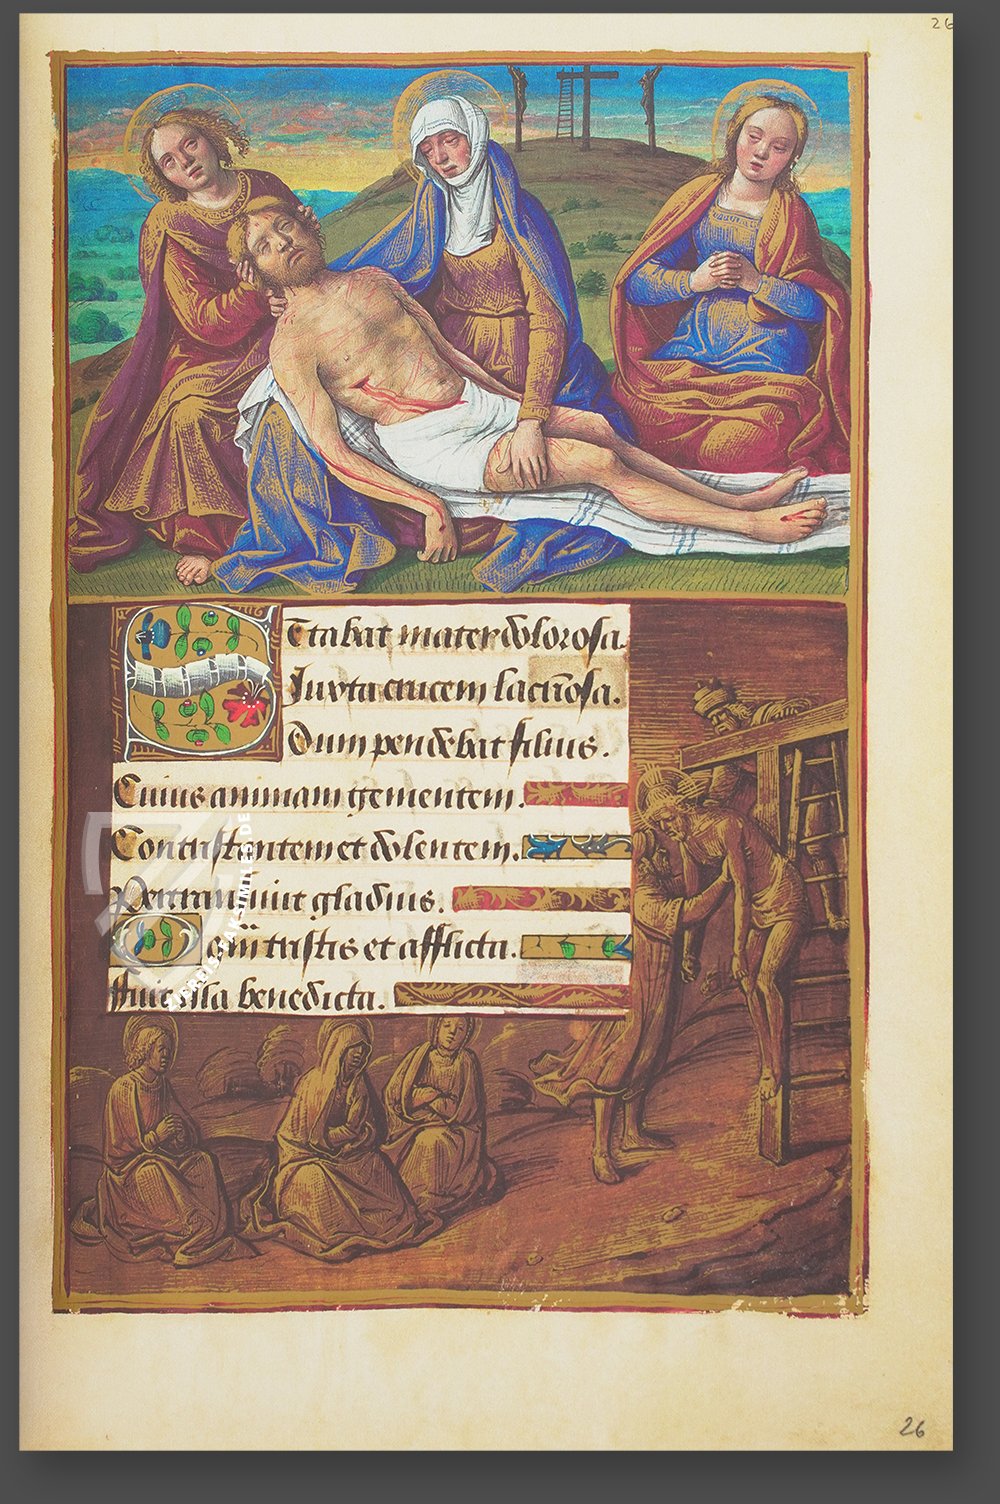 26
Stabat mater dolorosa.
Iuxta crucem lacrīosa.
Dum pendebat filius.
Cuius animam gementem.
Contristantem et dolentem.
Pertransiuit gladius.
O quā tristis et afflicta.
ffuit illa benedicta.
FAKSIMILES.DE
26